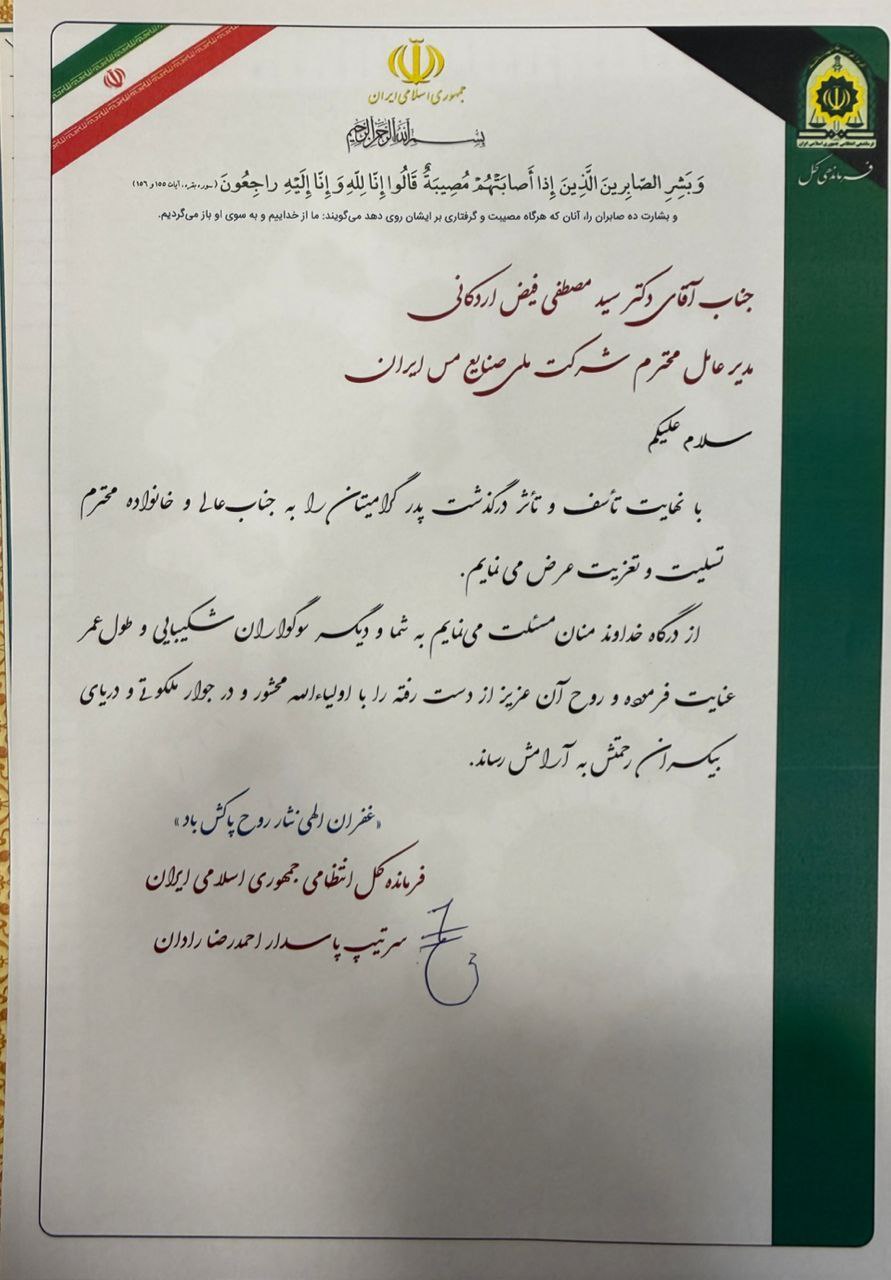 جمهوری اسلامی ایران
بسم الله الرحمن الرحیم
فرماندهی انتظامی جمهوری اسلامی ایران
فرماندهی کل
وَ بَشِّرِ الصّابِرینَ الَّذینَ إِذا أَصابَتْهُمْ مُصیبَةٌ قالُوا إِنّا لِلّهِ وَ إِنّا إِلَیْهِ راجِعُونَ (سوره بقره، آیات ۱۵۵ و ۱۵۶)
و بشارت ده صابران را، آنان که هرگاه مصیبت و گرفتاری بر ایشان روی دهد می‌گویند: ما از خداییم و به سوی او باز می‌گردیم.
جناب آقای دکتر سید مصطفی فیض اردکانی
مدیر عامل محترم شرکت ملی صنایع مس ایران
سلام علیکم
با نهایت تأسف و تأثر درگذشت پدر گرامیتان را به جناب‌عالی و خانواده محترم
تسلیت و تعزیت عرض می نمایم.
از درگاه خداوند منان مسئلت می‌نمایم به شما و دیگر سوگواران شکیبایی و طول عمر
عنایت فرموده و روح آن عزیز از دست رفته را با اولیاءالله محشور و در جوار ملکوتی و دریای
بیکران رحمتش به آرامش رساند.
«غفران الهی نثار روح پاکش باد»
فرمانده کل انتظامی جمهوری اسلامی ایران
سرتیپ پاسدار احمدرضا رادان